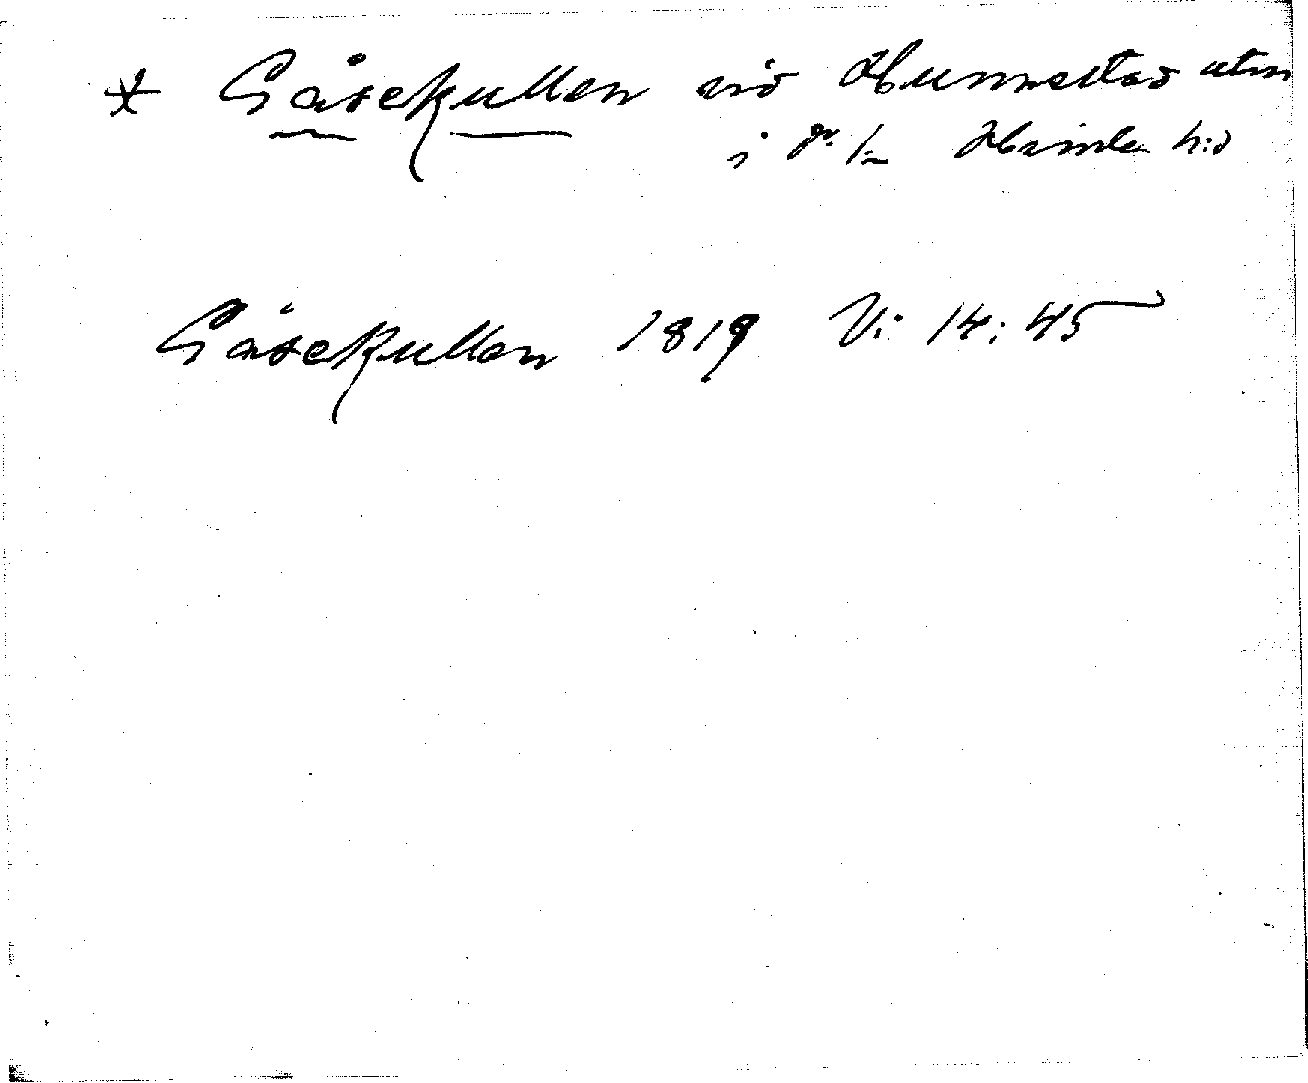 * Gåsekullen vid Hunnestad utm
i Gr. ln Himle h:d
Gåsekullen 1819 V: 14:45